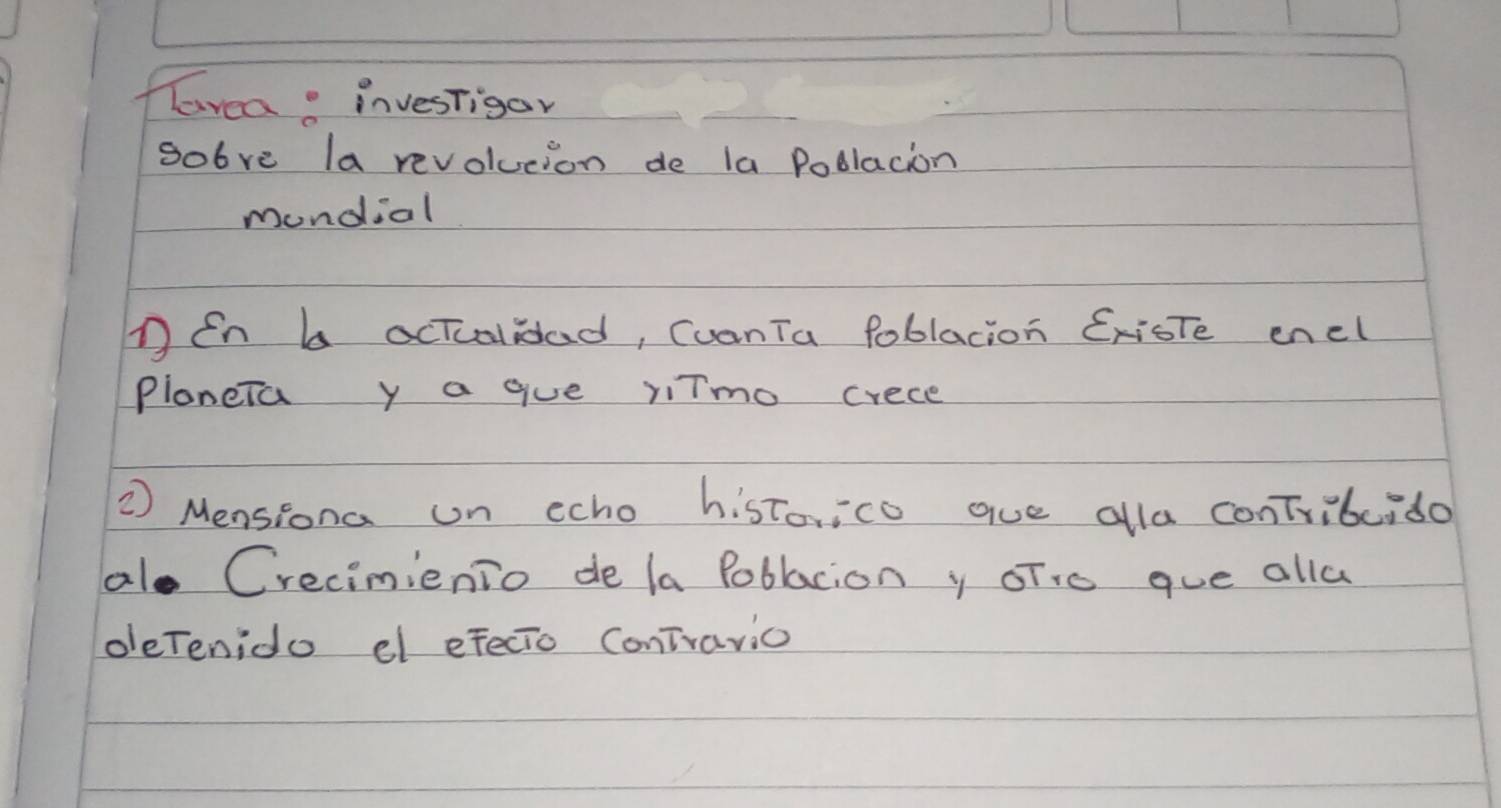 Tarea: investigar
sobre la revolucion de la Población
mundial
1) En la actualidad, Cuanta Poblacion Existe en el
Planeta y a que ritmo crece
2) Mensiona un echo historico que alla contribuido
al Crecimiento de la Poblacion y otro que alla
detenido el efecto Contrario